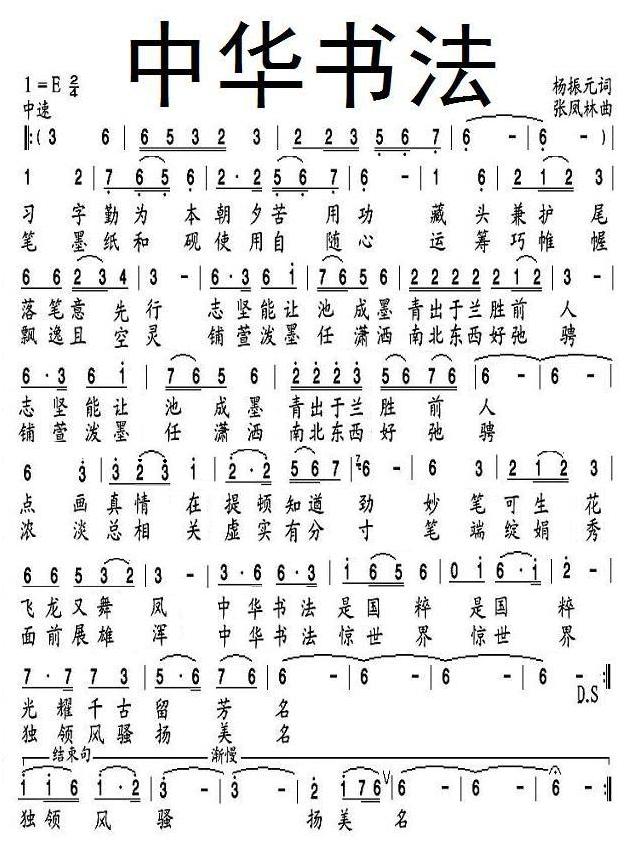 中华书法
1=E 2/4
杨振元词
中速
张凤林曲
‖:( 3 6 | 6 5 3 2 | 2 3 | 2 3 5 6 7 | 6 - | 6 - ) |
1 2 | 7 6 5 6 5 | 2 · 2 | 2 5 6 7 | 6 - | 1 6 | 2 1 2 3 |
习 字 勤为 本朝夕苦 用功 藏头兼护尾
笔 墨 纸和 砚使用自 随心 运筹巧帷幄
6 6 2 3 4 | 3 - | 6 · 3 6 i | 7 6 5 6 | 2 2 2 2 2 1 2 | 3 - |
落笔意先行 志坚能让池成墨青出于兰胜前人
飘逸且空灵 铺萱泼墨任潇洒南北东西好弛骋
6 · 3 6 i | 7 6 5 6 | 2 2 2 3 | 5 6 7 6 | 6 - | 6 - |
志坚能让池成墨青出于兰胜前人
铺萱泼墨任潇洒南北东西好弛骋
6 3 | 3 2 3 i | 2 · 2 | 2 5 6 7 | 6 - | 6 - | 2 1 2 3 |
点画真情在提顿知遒劲 妙笔可生花
浓淡总相关虚实有分寸 笔端绽娟秀
6 6 5 3 2 | 3 - | 3 · 6 6 · 3 | i 6 5 6 | 0 i 6 · i | 2 - |
飞龙又舞凤 中华书法是国粹是国粹
面前展雄浑 中华书法惊世界惊世界
7 · 7 7 3 | 5 · 7 | 6 - | 6 - | 6 - | 6 - :‖
D.S
光耀千古留芳名
独领风骚扬美名
结束句 渐慢
i i 6 | i · 2 | 3 - | 3 - | 2 i 7 6 | 6 - | 6 - :‖
独领风骚 扬美名